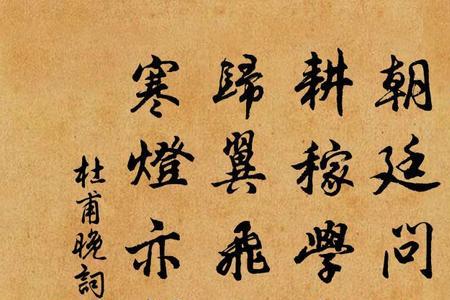 朝廷问
耕稼學
歸翼飛
寒燈亦
杜甫晚詞